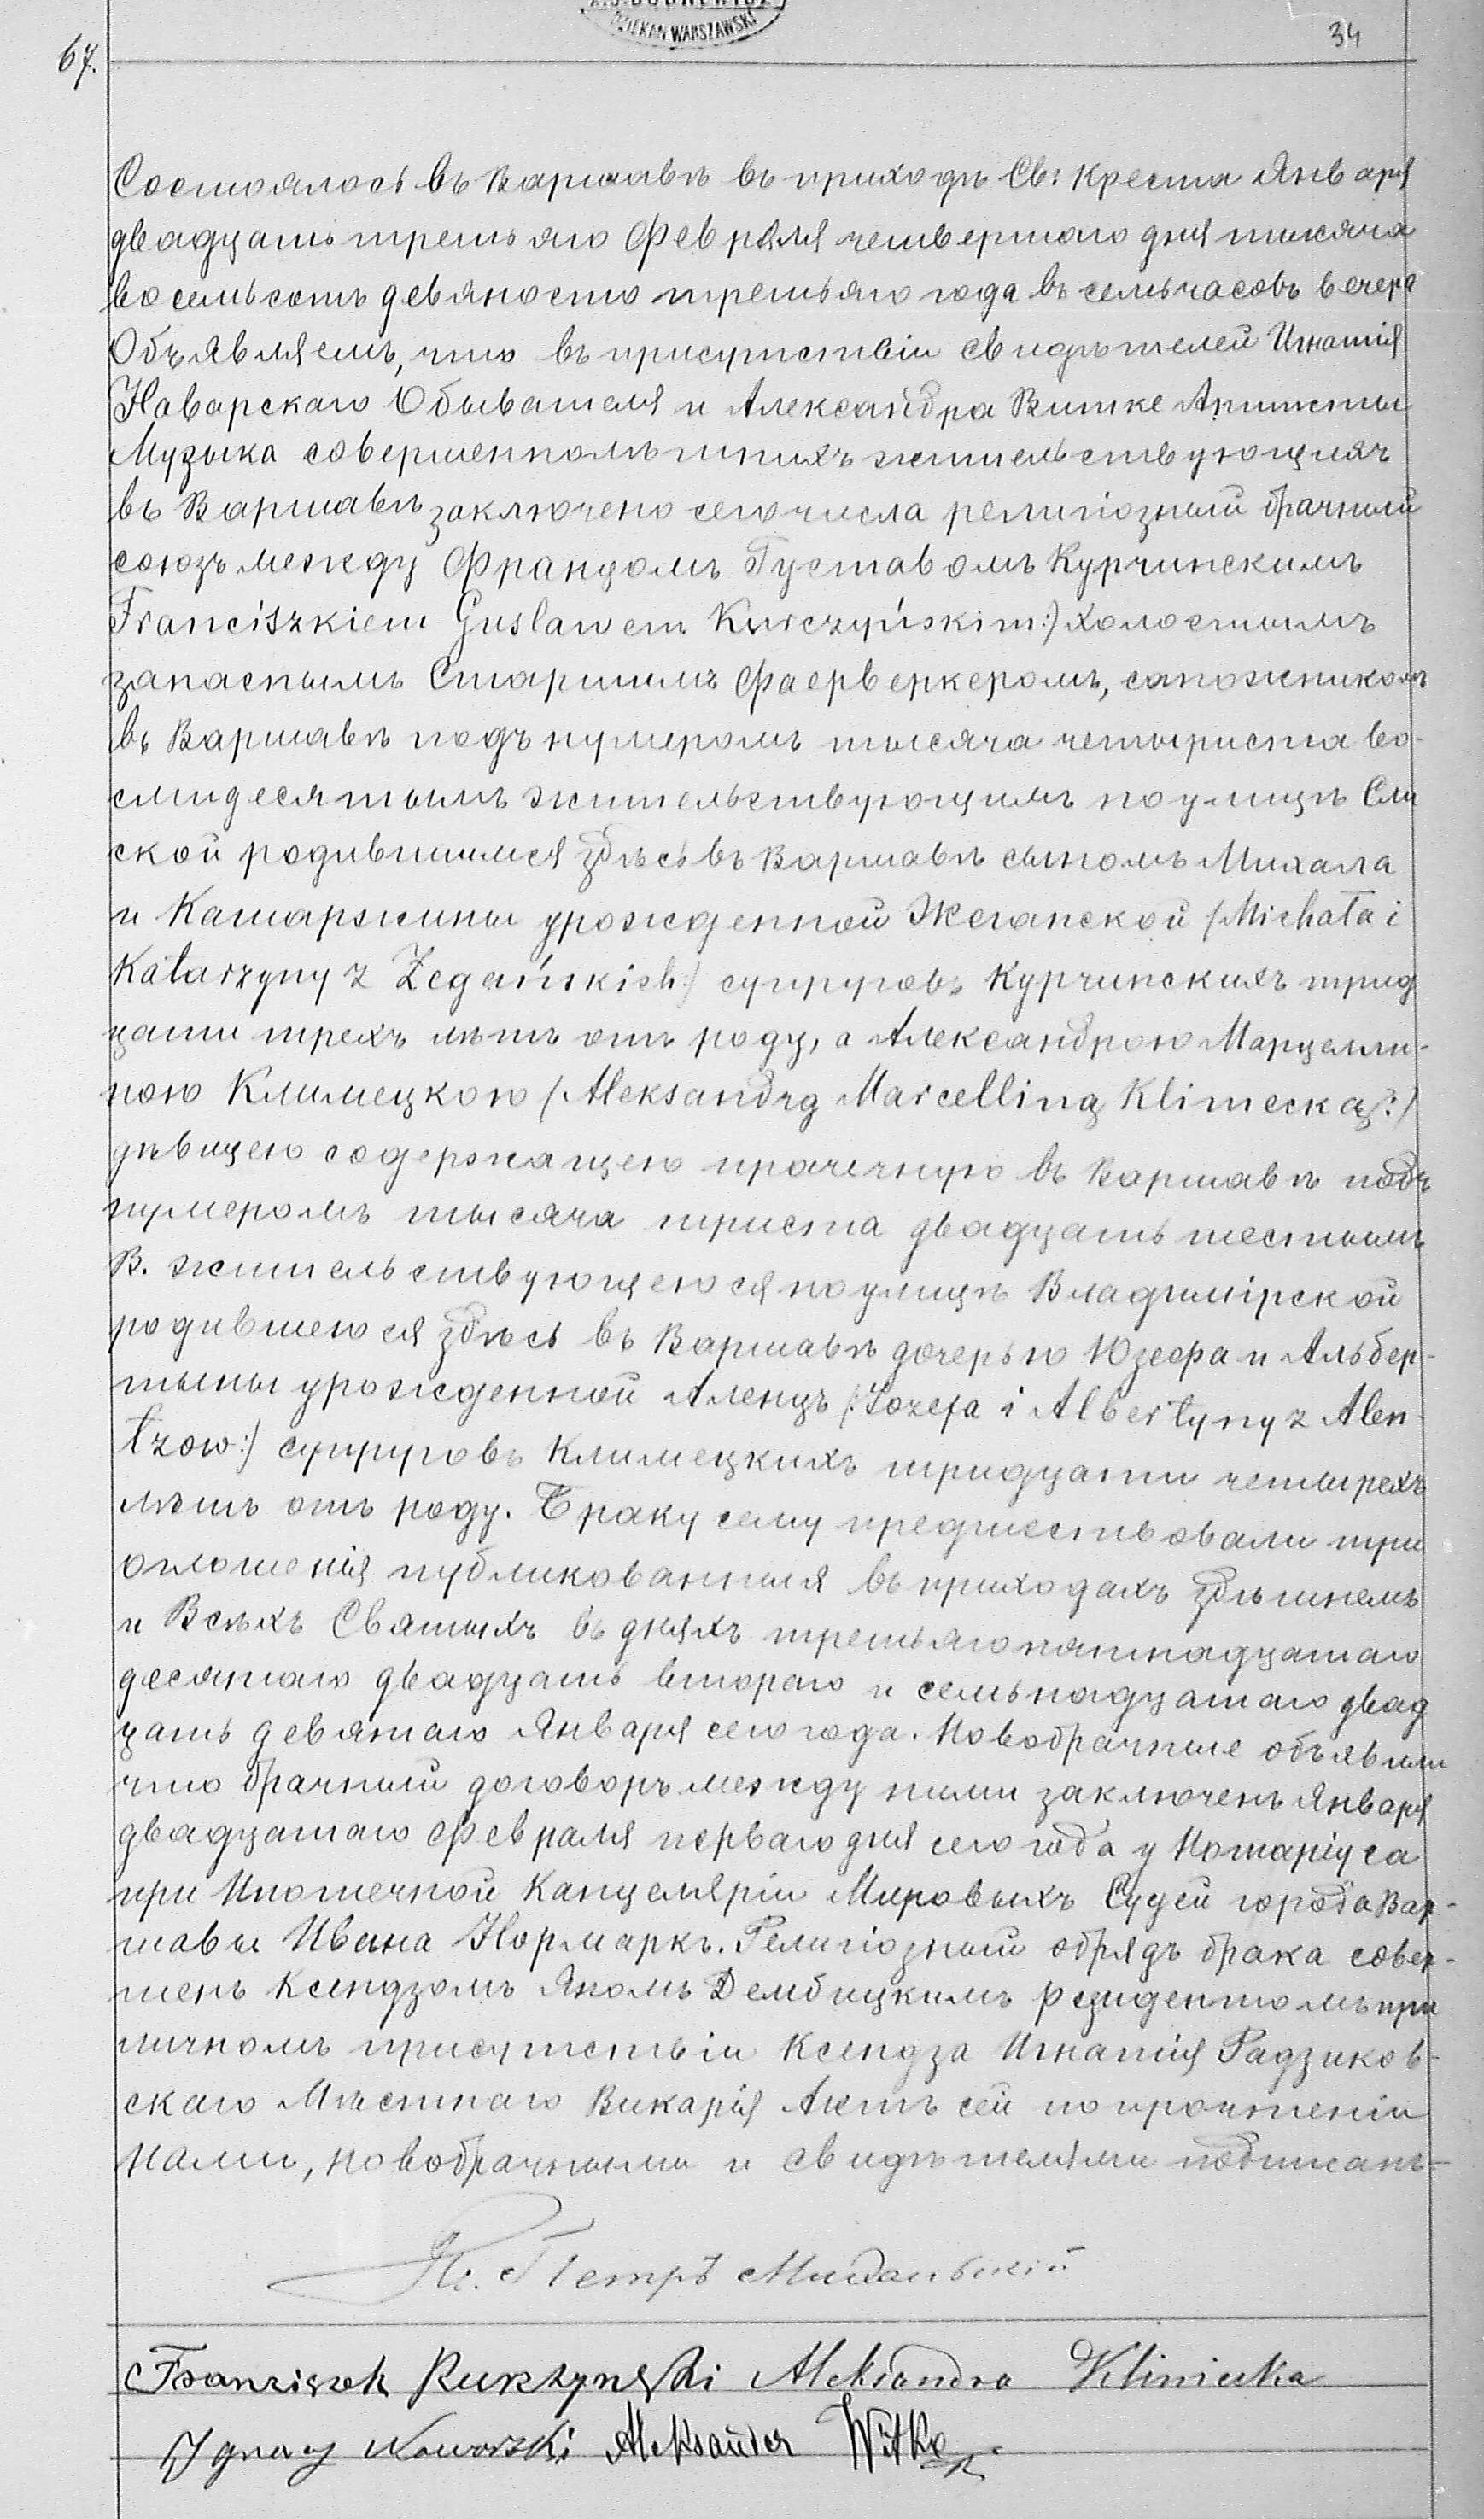 DZIEKAN WARSZAWSKI
34
67.
Состоялось въ Варшавѣ въ приходѣ Св: Креста Января
двадцать третьяго Февраля четвертаго дня тысяча
восемьсотъ девяносто третьяго года въ семь часовъ вечера
Объявляемъ, что въ присутствіи свидѣтелей Игнатія
Наварскаго Обывателя и Александра Витке Артисты
Музыка совершеннолѣтнихъ жительствующихъ
въ Варшавѣ заключено сего числа религіозный брачный
союзъ между Францомъ Густавомъ Курчинскимъ
Franciszkiem Gustawem Kurczyńskim:) холостымъ
запаснымъ Старшимъ Фаерверкеромъ, сапожникомъ
въ Варшавѣ подъ нумеромъ тысяча четыриста во-
смидесятымъ жительствующимъ по улицѣ Сли
ской родившимся здѣсь въ Варшавѣ сыномъ Михала
и Катаржины урожденной Жеганской (Michała i
Katarzyny z Żegańskich:) супруговъ Курчинскихъ трид
цати трехъ лѣтъ отъ роду, а Александрою Марцелли-
ною Климецкою (Aleksandrą Marcelliną Klimecką:)
дѣвицею содержащею прачечную въ Варшавѣ подъ
нумеромъ тысяча триста двадцать шестымъ
В. жительствующеюся по улицѣ Владимірской
родившеюся здѣсь въ Варшавѣ дочерью Юзефа и Альбер-
тыны урожденной Аленцъ (:Józefa i Albertyny z Alen-
tzow:) супруговъ Климецкихъ тридцати четырехъ
лѣтъ отъ роду. Браку сему предшествовали три
оглошенія публикованныя въ приходахъ здѣшнемъ
и Всѣхъ Святыхъ въ дняхъ третьяго пятнадцатаго
десятаго двадцать втораго и семьнадцатаго двад
цать девятаго Января сего года. Новобрачные объявили
что брачный договоръ между ними заключенъ Января
двадцатаго Февраля перваго дня сего года у Нотаріуса
при Ипотечной Канцеляріи Мировыхъ Судей города Вар-
шавы Ивана Нормаркъ. Религіозный обрядъ брака совер-
шенъ Ксендзомъ Яномъ Дембицкимъ резидентомъ при
личномъ присутствіи Ксендза Игнатія Радзиков-
скаго Мѣстнаго Викарія Актъ сей по прочтеніи
Нами, новобрачными и свидѣтелями подписанъ-
Петръ
Franziszek Kurszynski Aleksandra Klimecka
Ignacy Nawarski Aleksander Witke